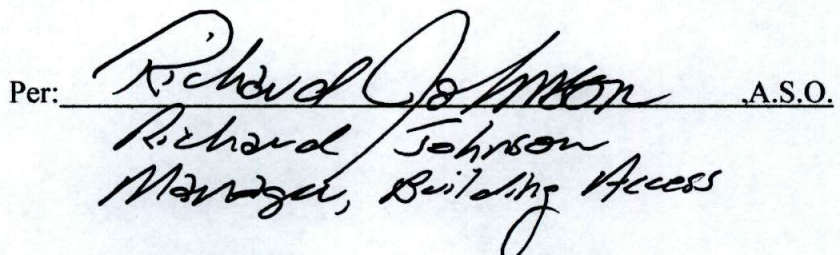 Per: Richard Johnson ,A.S.O.
Richard Johnson
Manager, Building Access